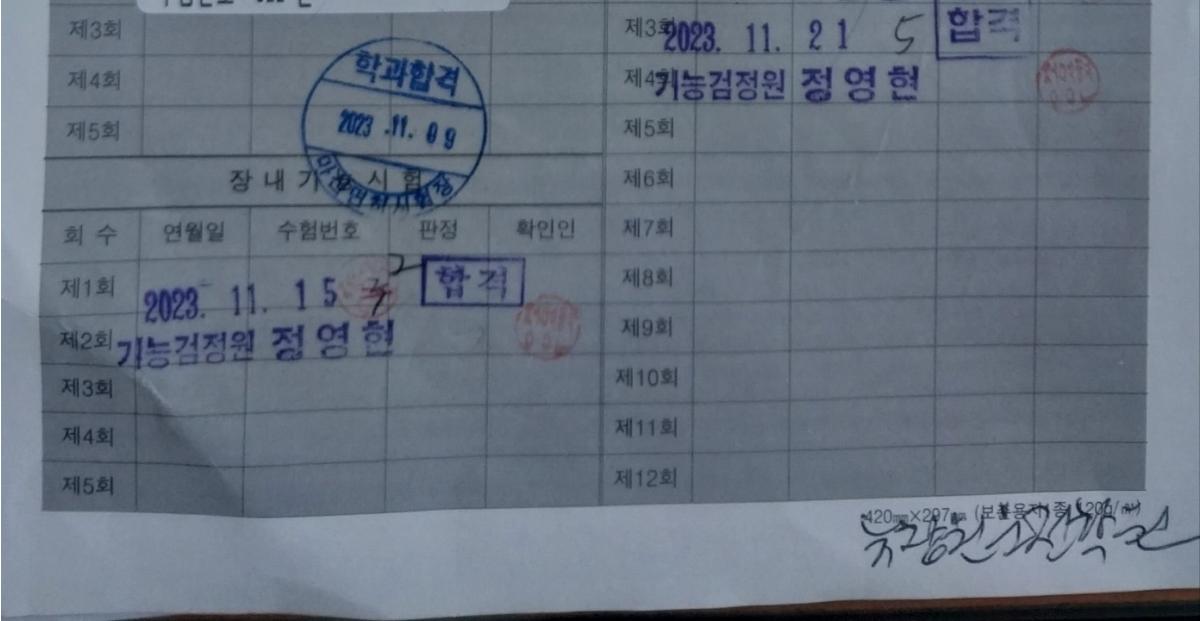 제3회
제4회
제5회
학과합격
2023.11.09
장내기능시험
회수 연월일 수험번호 판정 확인인
제1회 2023. 11. 15 합격
제2회 기능검정원 정영현
제3회
제4회
제5회
제3회 2023. 11. 21 5 합격
제4회 기능검정원 정영현
제5회
제6회
제7회
제8회
제9회
제10회
제11회
제12회
420㎜×297㎜